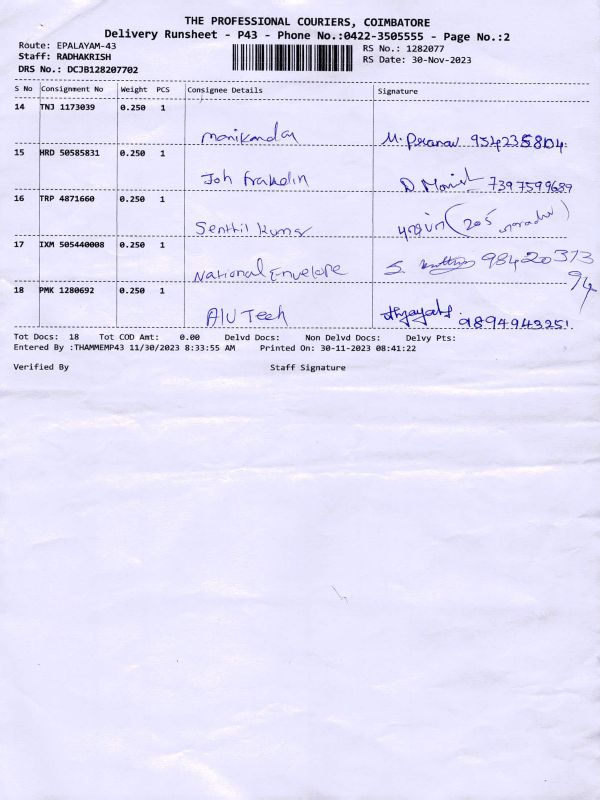 THE PROFESSIONAL COURIERS, COIMBATORE
Delivery Runsheet - P43 - Phone No.:0422-3505555 - Page No.:2
Route: EPALAYAM-43
RS No.: 1282077
Staff: RADHAKRISH
RS Date: 30-Nov-2023
DRS No.: DCJB128207702
S No Consignment No Weight PCS Consignee Details Signature
14 TNJ 1173039 0.250 1
manikandan M. Pranav 9542358104.
15 HRD 50585831 0.250 1
Joh franklin D. 7397599689
16 TRP 4871660 0.250 1
Senthil Kumar (205
17 IXM 505440008 0.250 1
National Envelope S. 98420313
94
18 PMK 1280692 0.250 1
AlU Tech 9894943251.
Tot Docs: 18 Tot COD Amt: 0.00 Delvd Docs: Non Delvd Docs: Delvy Pts:
Entered By :THAMMEMP43 11/30/2023 8:33:55 AM Printed On: 30-11-2023 08:41:22
Verified By Staff Signature